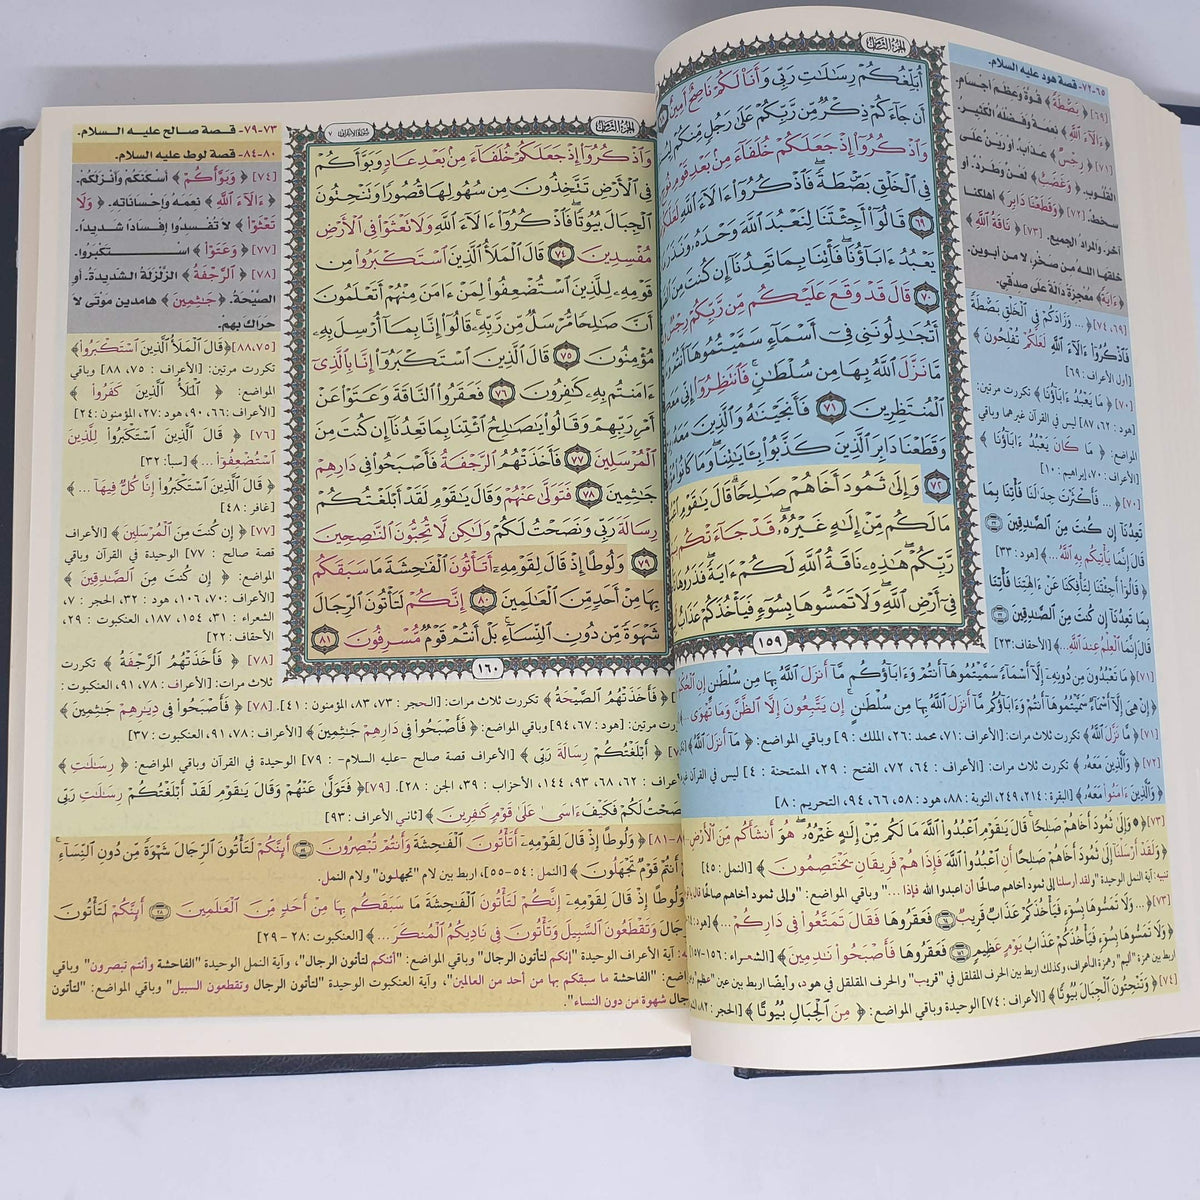 الجزء الثامن
أُبَلِّغُكُمْ رِسَٰلَٰتِ رَبِّي وَأَنَا۠ لَكُمْ نَاصِحٌ أَمِينٌ
أَن جَآءَكُمْ ذِكْرٌ مِّن رَّبِّكُمْ عَلَىٰ رَجُلٍ مِّنكُمْ
وَٱذْكُرُوٓا۟ إِذْ جَعَلَكُمْ خُلَفَآءَ مِنۢ بَعْدِ قَوْمِ
فِي ٱلْخَلْقِ بَصْۜطَةً ۖ فَٱذْكُرُوٓا۟ ءَالَآءَ ٱللَّهِ
٦٩ قَالُوٓا۟ أَجِئْتَنَا لِنَعْبُدَ ٱللَّهَ وَحْدَهُۥ وَنَذَرَ
يَعْبُدُ ءَابَآؤُنَا ۖ فَأْتِنَا بِمَا تَعِدُنَآ إِن كُنتَ مِنَ
٧٠ قَالَ قَدْ وَقَعَ عَلَيْكُم مِّن رَّبِّكُمْ رِجْسٌ
أَتُجَٰدِلُونَنِي فِيٓ أَسْمَآءٍ سَمَّيْتُمُوهَآ أَنتُمْ
مَّا نَزَّلَ ٱللَّهُ بِهَا مِن سُلْطَٰنٍ ۚ فَٱنتَظِرُوٓا۟ إِنِّي
ٱلْمُنتَظِرِينَ ٧١ فَأَنجَيْنَٰهُ وَٱلَّذِينَ مَعَهُۥ
وَقَطَعْنَا دَابِرَ ٱلَّذِينَ كَذَّبُوا۟ بِـَٔايَٰتِنَا ۖ وَمَا كَانُوا۟
٧٢ وَإِلَىٰ ثَمُودَ أَخَاهُمْ صَٰلِحًا ۗ قَالَ يَٰقَوْمِ
مَا لَكُم مِّنْ إِلَٰهٍ غَيْرُهُۥ ۖ قَدْ جَآءَتْكُم
رَّبِّكُمْ ۖ هَٰذِهِۦ نَاقَةُ ٱللَّهِ لَكُمْ ءَايَةً ۖ فَذَرُوهَا
فِيٓ أَرْضِ ٱللَّهِ ۖ وَلَا تَمَسُّوهَا بِسُوٓءٍ فَيَأْخُذَكُمْ عَذَابٌ
١٥٩
٦٥-٧٢- قصة هود عليه السلام.
[٦٩] ﴿بَصْۜطَةً﴾ قوة وعظم أجسام.
﴿ءَالَآءَ ٱللَّهِ﴾ نعمه وفضله الكثير.
[٧١] ﴿رِجْسٌ﴾ عذاب. أو رين على
القلوب. ﴿وَغَضَبٌ﴾ لعن وطرد. أو
سخط. [٧٢] ﴿وَقَطَعْنَا دَابِرَ﴾ أهلكنا
آخر. والمراد الجميع. [٧٣] ﴿نَاقَةُ ٱللَّهِ﴾
خلقها الله من صخر، لا من أبوين.
﴿ءَايَةً﴾ معجزة دالة على صدقي.
[٦٩، ٧٤] ﴿... وَزَادَكُمْ فِي ٱلْخَلْقِ بَصْۜطَةً
فَٱذْكُرُوٓا۟ ءَالَآءَ ٱللَّهِ لَعَلَّكُمْ تُفْلِحُونَ﴾
[أول الأعراف: ٦٩]
[٧٠] ﴿مَا يَعْبُدُ ءَابَآؤُنَا﴾ تكررت مرتين:
[هود: ٦٢، ٨٧] ليس في القرآن غيرها وباقي
المواضع: ﴿مَا كَانَ يَعْبُدُ ءَابَآؤُنَا﴾
[الأعراف: ٧٠، إبراهيم: ١٠]
[٧٠] ﴿... فَأَكْثَرْتَ جِدَٰلَنَا فَأْتِنَا بِمَا
تَعِدُنَآ إِن كُنتَ مِنَ ٱلصَّٰدِقِينَ
قَالَ إِنَّمَا يَأْتِيكُم بِهِ ٱللَّهُ ...﴾ [هود: ٣٣]
﴿قَالُوٓا۟ أَجِئْتَنَا لِتَأْفِكَنَا عَنْ ءَالِهَتِنَا فَأْتِنَا
بِمَا تَعِدُنَآ إِن كُنتَ مِنَ ٱلصَّٰدِقِينَ
قَالَ إِنَّمَا ٱلْعِلْمُ عِندَ ٱللَّهِ ...﴾ [الأحقاف: ٢٣]
[٧١] ﴿مَا تَعْبُدُونَ مِن دُونِهِۦٓ إِلَّآ أَسْمَآءً سَمَّيْتُمُوهَآ أَنتُمْ وَءَابَآؤُكُم مَّآ أَنزَلَ ٱللَّهُ بِهَا مِن سُلْطَٰنٍ ۚ إِنِ ٱلْحُكْمُ
﴿إِنْ هِيَ إِلَّآ أَسْمَآءٌ سَمَّيْتُمُوهَآ أَنتُمْ وَءَابَآؤُكُم مَّآ أَنزَلَ ٱللَّهُ بِهَا مِن سُلْطَٰنٍ ۚ إِن يَتَّبِعُونَ إِلَّا ٱلظَّنَّ وَمَا تَهْوَى
[٧١] ﴿مَّا نَزَّلَ ٱللَّهُ﴾ تكررت ثلاث مرات: [الأعراف: ٧١، محمد: ٢٦، الملك: ٩] وباقي المواضع: ﴿مَآ أَنزَلَ ٱللَّهُ﴾
[٧٢] ﴿وَٱلَّذِينَ مَعَهُۥ﴾ تكررت ثلاث مرات: [الأعراف: ٦٤، ٧٢، الفتح: ٢٩، الممتحنة: ٤] ليس في القرآن
﴿وَٱلَّذِينَ ءَامَنُوا۟ مَعَهُۥ﴾ [البقرة: ٢١٤، ٢٤٩، التوبة: ٨٨، هود: ٥٨، ٦٦، ٩٤، التحريم: ٨]
[٧٣] ﴿وَإِلَىٰ ثَمُودَ أَخَاهُمْ صَٰلِحًا ۚ قَالَ يَٰقَوْمِ ٱعْبُدُوا۟ ٱللَّهَ مَا لَكُم مِّنْ إِلَٰهٍ غَيْرُهُۥ ۖ هُوَ أَنشَأَكُم مِّنَ ٱلْأَرْضِ
﴿وَلَقَدْ أَرْسَلْنَآ إِلَىٰ ثَمُودَ أَخَاهُمْ صَٰلِحًا أَنِ ٱعْبُدُوا۟ ٱللَّهَ فَإِذَا هُمْ فَرِيقَانِ يَخْتَصِمُونَ﴾ [النمل: ٤٥]
تنبيه: آية النمل الوحيدة "ولقد أرسلنا إلى ثمود أخاهم صالحًا أن اعبدوا الله فإذا ..." وباقي المواضع: "وإلى ثمود أخاهم صالحًا
[٧٣] ﴿... وَلَا تَمَسُّوهَا بِسُوٓءٍ فَيَأْخُذَكُمْ عَذَابٌ قَرِيبٌ فَعَقَرُوهَا فَقَالَ تَمَتَّعُوا۟ فِي دَارِكُمْ ...﴾
﴿وَلَا تَمَسُّوهَا بِسُوٓءٍ فَيَأْخُذَكُمْ عَذَابُ يَوْمٍ عَظِيمٍ فَعَقَرُوهَا فَأَصْبَحُوا۟ نَٰدِمِينَ﴾ [الشعراء: ١٥٦-١٥٧]
اربط بين همزة "أليم" وهمزة الأعراف، وكذلك اربط بين الحرف المقلقل في "قريب" والحرف المقلقل في هود، وأيضًا اربط بين عين "عظيم"
[٧٤] ﴿وَتَنْحِتُونَ ٱلْجِبَالَ بُيُوتًا﴾ [الأعراف: ٧٤] الوحيدة وباقي المواضع: ﴿مِنَ ٱلْجِبَالِ بُيُوتًا﴾ [الحجر: ٨٢
الجزء الثامن
سورة الأعراف ٧
وَٱذْكُرُوٓا۟ إِذْ جَعَلَكُمْ خُلَفَآءَ مِنۢ بَعْدِ عَادٍ وَبَوَّأَكُمْ
فِي ٱلْأَرْضِ تَتَّخِذُونَ مِن سُهُولِهَا قُصُورًا وَتَنْحِتُونَ
ٱلْجِبَالَ بُيُوتًا ۖ فَٱذْكُرُوٓا۟ ءَالَآءَ ٱللَّهِ وَلَا تَعْثَوْا۟ فِي ٱلْأَرْضِ
مُفْسِدِينَ ٧٤ قَالَ ٱلْمَلَأُ ٱلَّذِينَ ٱسْتَكْبَرُوا۟ مِن
قَوْمِهِۦ لِلَّذِينَ ٱسْتُضْعِفُوا۟ لِمَنْ ءَامَنَ مِنْهُمْ أَتَعْلَمُونَ
أَنَّ صَٰلِحًا مُّرْسَلٌ مِّن رَّبِّهِۦ ۚ قَالُوٓا۟ إِنَّا بِمَآ أُرْسِلَ بِهِۦ
مُؤْمِنُونَ ٧٥ قَالَ ٱلَّذِينَ ٱسْتَكْبَرُوٓا۟ إِنَّا بِٱلَّذِيٓ
ءَامَنتُم بِهِۦ كَٰفِرُونَ ٧٦ فَعَقَرُوا۟ ٱلنَّاقَةَ وَعَتَوْا۟ عَنْ
أَمْرِ رَبِّهِمْ وَقَالُوا۟ يَٰصَٰلِحُ ٱئْتِنَا بِمَا تَعِدُنَآ إِن كُنتَ مِنَ
ٱلْمُرْسَلِينَ ٧٧ فَأَخَذَتْهُمُ ٱلرَّجْفَةُ فَأَصْبَحُوا۟ فِي دَارِهِمْ
جَٰثِمِينَ ٧٨ فَتَوَلَّىٰ عَنْهُمْ وَقَالَ يَٰقَوْمِ لَقَدْ أَبْلَغْتُكُمْ
رِسَالَةَ رَبِّي وَنَصَحْتُ لَكُمْ وَلَٰكِن لَّا تُحِبُّونَ ٱلنَّٰصِحِينَ
٧٩ وَلُوطًا إِذْ قَالَ لِقَوْمِهِۦٓ أَتَأْتُونَ ٱلْفَٰحِشَةَ مَا سَبَقَكُم
بِهَا مِنْ أَحَدٍ مِّنَ ٱلْعَٰلَمِينَ ٨٠ إِنَّكُمْ لَتَأْتُونَ ٱلرِّجَالَ
شَهْوَةً مِّن دُونِ ٱلنِّسَآءِ ۚ بَلْ أَنتُمْ قَوْمٌ مُّسْرِفُونَ ٨١
١٦٠
٧٣-٧٩- قصة صالح عليه السلام.
٨١-٨٤- قصة لوط عليه السلام.
[٧٤] ﴿وَبَوَّأَكُمْ﴾ أسكنكم وأنزلكم.
﴿ءَالَآءَ ٱللَّهِ﴾ نعمه وإحساناته. ﴿وَلَا
تَعْثَوْا۟﴾ لا تفسدوا إفسادا شديدا.
[٧٧] ﴿وَعَتَوْا۟﴾ استكبروا.
[٧٨] ﴿ٱلرَّجْفَةُ﴾ الزلزلة الشديدة. أو
الصيحة. ﴿جَٰثِمِينَ﴾ هامدين موتى لا
حراك بهم.
[٧٥، ٨٨] ﴿قَالَ ٱلْمَلَأُ ٱلَّذِينَ ٱسْتَكْبَرُوا۟﴾
تكررت مرتين: [الأعراف: ٧٥، ٨٨] وباقي
المواضع: ﴿ٱلْمَلَأُ ٱلَّذِينَ كَفَرُوا۟﴾
[الأعراف: ٦٦، ٩٠، هود: ٢٧، المؤمنون: ٢٤]
[٧٦] ﴿قَالَ ٱلَّذِينَ ٱسْتَكْبَرُوا۟ لِلَّذِينَ
ٱسْتُضْعِفُوٓا۟ ...﴾ [سبأ: ٣٢]
﴿قَالَ ٱلَّذِينَ ٱسْتَكْبَرُوٓا۟ إِنَّا كُلٌّ فِيهَآ ...﴾
[غافر: ٤٨]
[٧٧] ﴿إِن كُنتَ مِنَ ٱلْمُرْسَلِينَ﴾ [الأعراف
قصة صالح: ٧٧] الوحيدة في القرآن وباقي
المواضع: ﴿إِن كُنتَ مِنَ ٱلصَّٰدِقِينَ﴾
[الأعراف: ٧٠، ١٠٦، هود: ٣٢، الحجر: ٧،
الشعراء: ٣١، ١٥٤، ١٨٧، العنكبوت: ٢٩،
الأحقاف: ٢٢]
[٧٨] ﴿فَأَخَذَتْهُمُ ٱلرَّجْفَةُ﴾ تكررت
ثلاث مرات: [الأعراف: ٧٨، ٩١، العنكبوت:
﴿فَأَخَذَتْهُمُ ٱلصَّيْحَةُ﴾ تكررت ثلاث مرات: [الحجر: ٧٣، ٨٣، المؤمنون: ٤١]. [٧٨] ﴿فَأَصْبَحُوا۟ فِي دِيَٰرِهِمْ جَٰثِمِينَ﴾
مرتين: [هود: ٦٧، ٩٤] وباقي المواضع: ﴿فَأَصْبَحُوا۟ فِي دَارِهِمْ جَٰثِمِينَ﴾ [الأعراف: ٧٨، ٩١، العنكبوت: ٣٧]
﴿أَبْلَغْتُكُمْ رِسَالَةَ رَبِّي﴾ [الأعراف قصة صالح -عليه السلام-: ٧٩] الوحيدة في القرآن وباقي المواضع: ﴿رِسَٰلَٰتِ﴾
[الأعراف: ٦٢، ٦٨، ٩٣، ١٤٤، الأحزاب: ٣٩، الجن: ٢٨]. [٧٩] ﴿فَتَوَلَّىٰ عَنْهُمْ وَقَالَ يَٰقَوْمِ لَقَدْ أَبْلَغْتُكُمْ رِسَٰلَٰتِ رَبِّي
وَنَصَحْتُ لَكُمْ فَكَيْفَ ءَاسَىٰ عَلَىٰ قَوْمٍ كَٰفِرِينَ﴾ [ثاني الأعراف: ٩٣]
﴿وَلُوطًا إِذْ قَالَ لِقَوْمِهِۦٓ أَتَأْتُونَ ٱلْفَٰحِشَةَ وَأَنتُمْ تُبْصِرُونَ أَئِنَّكُمْ لَتَأْتُونَ ٱلرِّجَالَ شَهْوَةً مِّن دُونِ ٱلنِّسَآءِ ۚ
أَنتُمْ قَوْمٌ تَجْهَلُونَ﴾ [النمل: ٥٤-٥٥]، اربط بين لام "تجهلون" ولام النمل.
وَلُوطًا إِذْ قَالَ لِقَوْمِهِۦٓ إِنَّكُمْ لَتَأْتُونَ ٱلْفَٰحِشَةَ مَا سَبَقَكُم بِهَا مِنْ أَحَدٍ مِّنَ ٱلْعَٰلَمِينَ ٢٨ أَئِنَّكُمْ لَتَأْتُونَ
ٱلرِّجَالَ وَتَقْطَعُونَ ٱلسَّبِيلَ وَتَأْتُونَ فِي نَادِيكُمُ ٱلْمُنكَرَ ...﴾ [العنكبوت: ٢٨-٢٩]
آية الأعراف الوحيدة "إنكم لتأتون الرجال" وباقي المواضع: "أئنكم لتأتون الرجال"، وآية النمل الوحيدة "الفاحشة وأنتم تبصرون" وباقي
"الفاحشة ما سبقكم بها من أحد من العالمين"، وآية العنكبوت الوحيدة "لتأتون الرجال وتقطعون السبيل" وباقي المواضع: "لتأتون
الرجال شهوة من دون النساء".